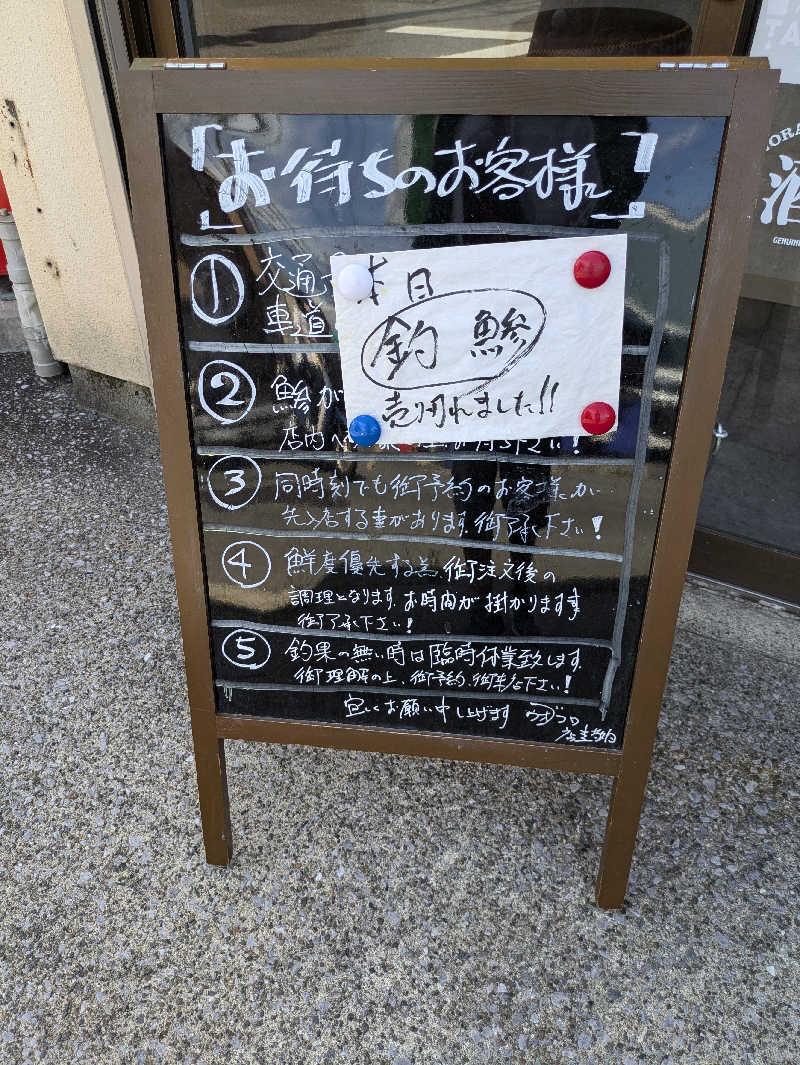 「お待ちのお客様」
① 交通
車道
本日
釣 鯵
売り切れました!!
② 鯵が
店内へ 下さい!
③ 同時刻でも御予約のお客様が
先入店する事があります。御了承下さい!
④ 鮮度優先する為、御注文後の
調理となります。お時間が掛かります事
御了承下さい!
⑤ 釣果の無い時は臨時休業致します。
御理解の上、御予約、御来店下さい!
宜しくお願い申し上げます
店主
酒
GENUINE